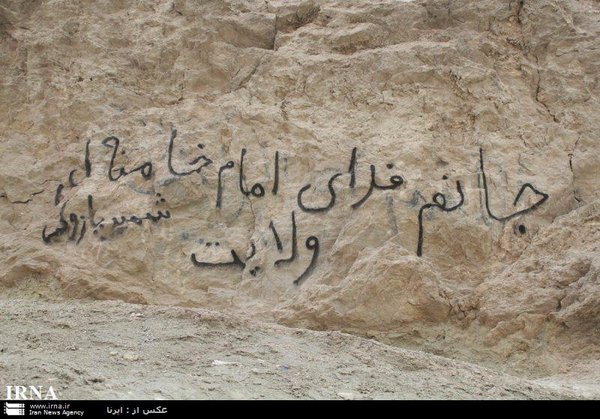 جانم فدای امام خامنه ای
شهید بازوکی
ولایت
IRNA
www.irna.ir
Iran News Agency
عکس از : ایرنا